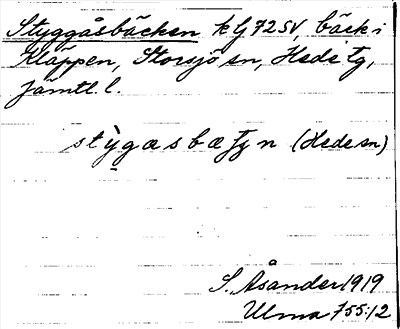 Styggåsbäcken kG72SV, bäck i
Kläppen, Storsjö sn, Hede tg,
Jämtl. l.
(Hede sn)
S. Åsander 1919
Ulma 755:12